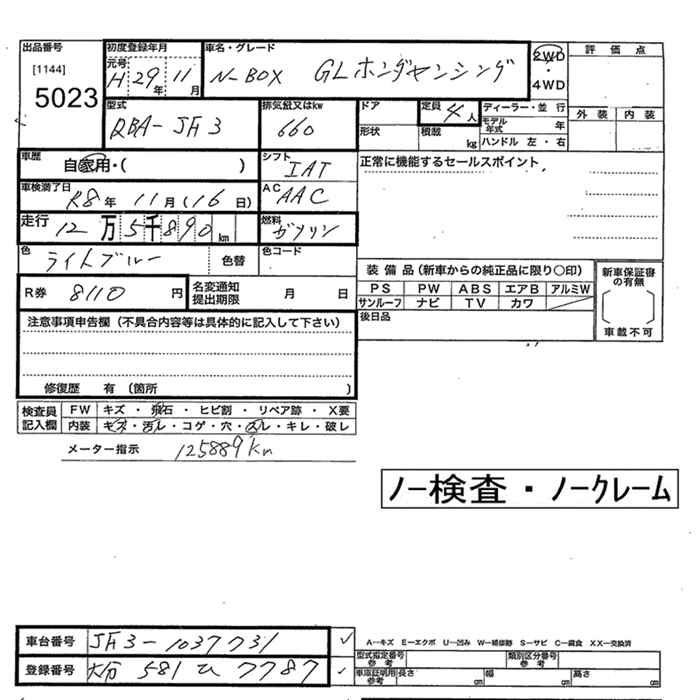 出品番号 初度登録年月 車名・グレード 2WD 評価点
[1144] 元号 H 29年 11月 N-BOX GLホンダセンシング ・
5023 4WD
型式 排気量又はkw ドア 定員 4人 ディーラー・並行 外装 内装
DBA-JF3 660 形状 積載 kg モデル年式 年
ハンドル 左・右
車歴 自家用・( ) シフト IAT 正常に機能するセールスポイント
車検満了日 R8年 11月(16日) AC AAC
走行 12万5千890km 燃料 ガソリン
色 ライトブルー 色替 色コード
装備品(新車からの純正品に限り○印) 新車保証書の有無
R券 8110円 名変通知提出期限 月 日 PS PW ABS エアB アルミW
サンルーフ ナビ TV カワ
注意事項申告欄(不具合内容等は具体的に記入して下さい) 後日品 車載不可
修復歴 有 (箇所 )
検査員記入欄 FW キズ・飛石・ヒビ割・リペア跡・X要
内装 キズ・汚レ・コゲ・穴・スレ・キレ・破レ
メーター指示 125889km
ノー検査・ノークレーム
車台番号 JF3-1037731 A-キズ E-エクボ U-凹み W-補修跡 S-サビ C-腐食 XX-交換済
型式指定番号 参考 類別区分番号 参考
登録番号 581 ひ 7787 車庫証明用 参考 長さ cm 幅 cm 高さ cm